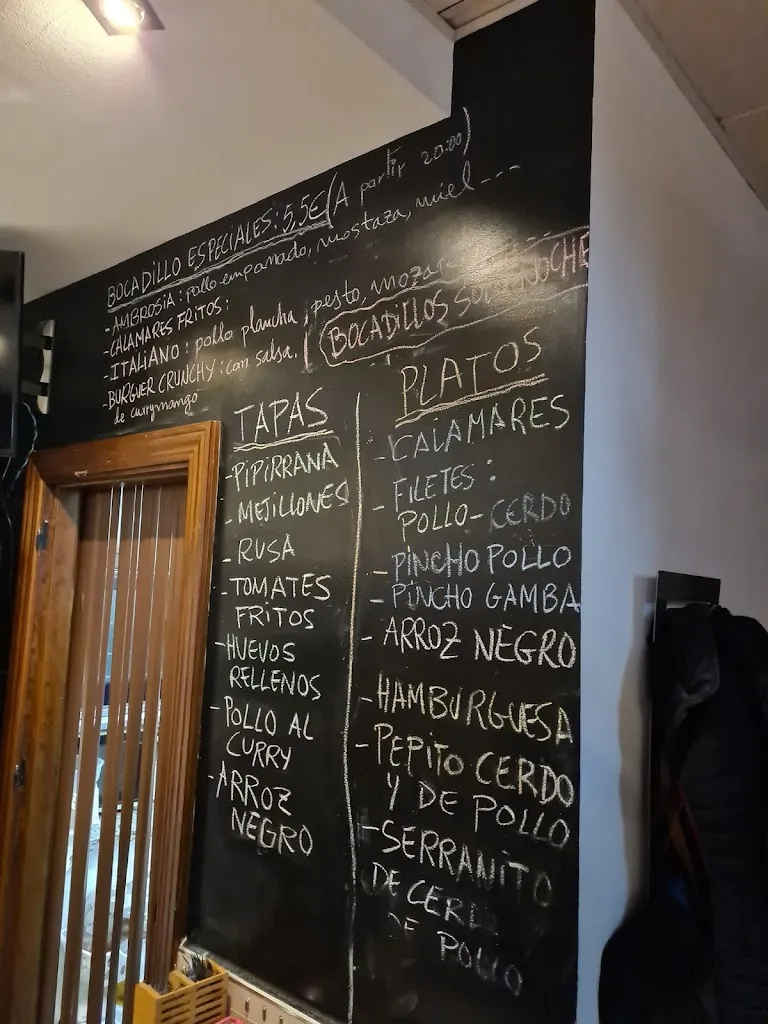 BOCADILLO ESPECIALES: 5,5€ (A partir 20:00)
- AMBROSIA: pollo empanado, mostaza, miel ---
- CALAMARES FRITOS:
- ITALIANO: pollo plancha, pesto,
- BURGUER CRUNCHY: con salsa.
de currymango
BOCADILLOS
TAPAS
- PIPIRRANA
- MEJILLONES
- RUSA
- TOMATES
FRITOS
- HUEVOS
RELLENOS
- POLLO AL
CURRY
- ARROZ
NEGRO
PLATOS
- CALAMARES
- FILETES:
POLLO - CERDO
- PINCHO POLLO
- PINCHO GAMBA
- ARROZ NEGRO
- HAMBURGUESA
- PEPITO CERDO
Y DE POLLO
- SERRANITO
DE CERDO
DE POLLO